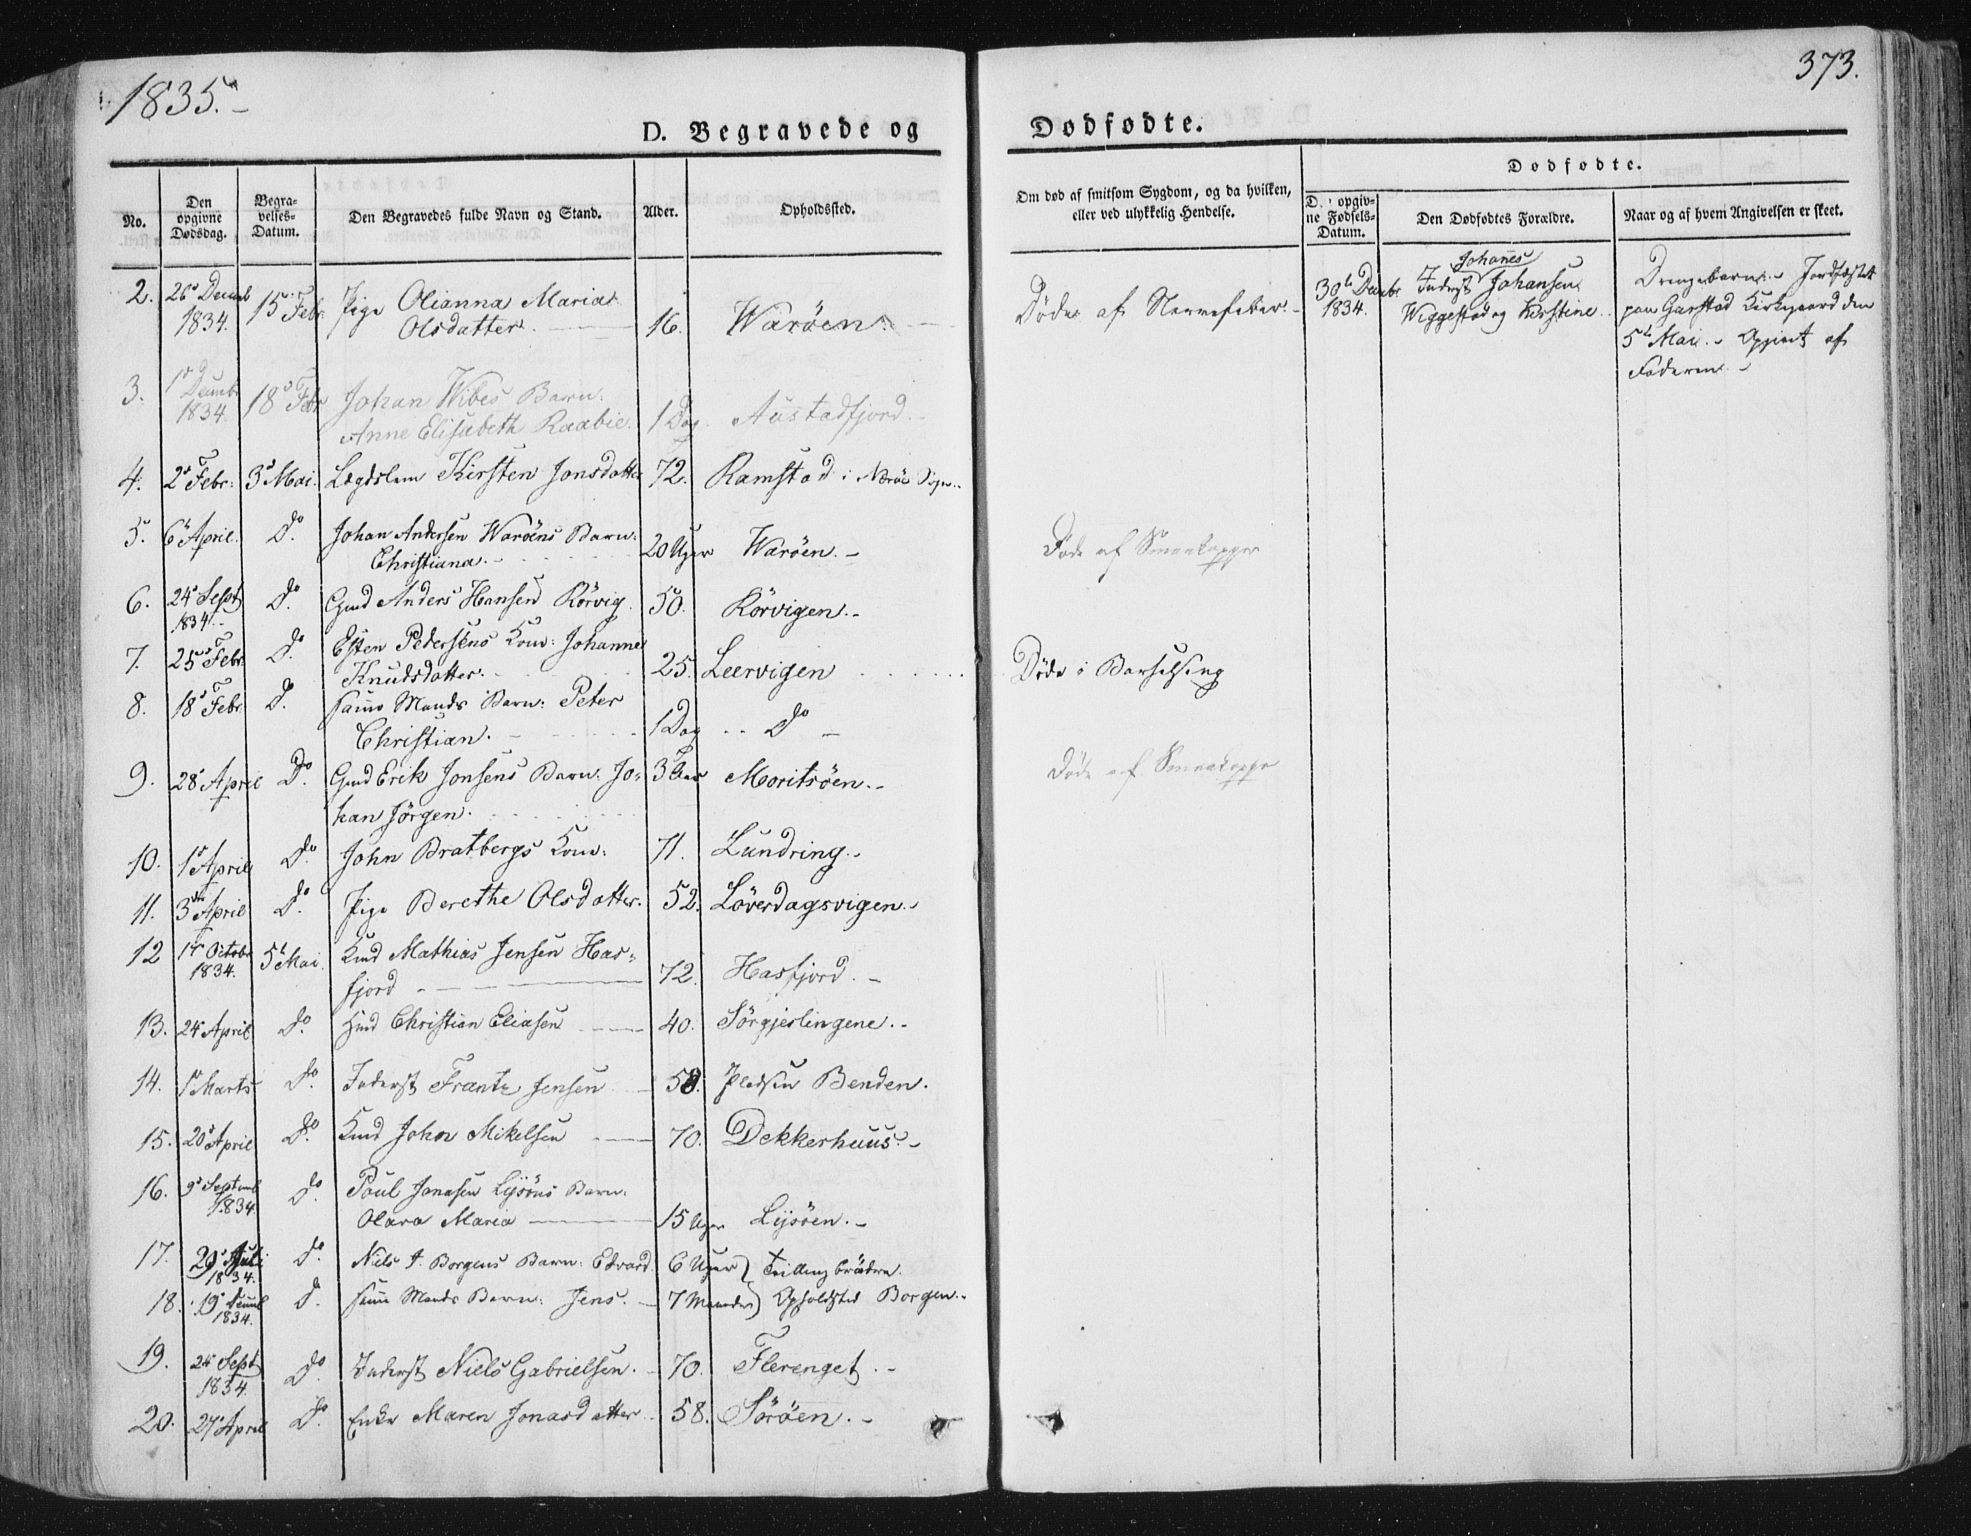 1835.-
373.
D. Begravede og
Dødfødte.
No.
Den opgivne Dødsdag.
Begravelses-Datum.
Den Begravedes fulde Navn og Stand.
Alder.
Opholdssted.
Om død af smitsom Sygdom, og da hvilken, eller ved ulykkelig Hendelse.
Dødfødte.
Den Dødfødtes Forældre.
Naar og af hvem Angivelsen er skeet.
2. 26de Decemb 1834. 15 Febr Pige Olianna Maria
Olsdatter. 16. Warøen. Døde af Nervefeber.
30te Decembr. 1834. Inderst Johannes Johansen
Wiggestad og Kirstine.
Drengebarn. Jordfæstet
paa Garstad Kirkegaard den
5te Mai. Opgivet af
Faderen.
3. 1ste Decemb 1834. 18de Febr Johan Wibes Barn:
Anne Elisabeth Raabie. 1 Dag. Austadfjord.
4. 2de Febr: 3de Mai. Lægdslem Kirsten Jonsdatter 72. Ramstad i Nærøe Sogn.
5. 6te April. Do. Johan Andersen Warøens Barn:
Christiana. 20 Uger Warøen. Døde af Smaakopper
6. 24de Sept 1834. Do. Gmd Anders Hansen Rörvig. 50. Rörvigen.
7. 25de Febr. Do. Esten Pedersens Kone: Johanne
Knudsdatter. 25. Leervigen Døde i Barselseng
8. 18de Febr. Do. samme Mands Barn: Peter
Christian. 1 Dag Do
9. 28de April Do. Gmd Erik Jonsens Barn: Jo=
han Jörgen. 3 Aar Moritsöen. Døde af Smaakopper
10. 1ste April Do. John Bratbergs Kone: 71. Lundring.
11. 3die April Do. Pige Berethe Olsdatter. 52. Löverdagsvigen.
12 Octobr 1834. 5te Mai. Mathias Jensen Has=
fjord 72. Hasfjord.
13. 24de April Do. Christian Eliasen 40. Sörgjeslingene.
14. 1ste Marts Do. Inderst Frantz Jensen Pladsen Benden.
15. 20de April Do. John Mikelsen 70. Dekkerhuus.
16. 9de Septemb 1834. Do. Poul Jonasen Lysöens Barn:
Olava Maria 15 Uger Lysöen.
17. 1834. Do. Niels J. Borgens Barn: Edvard. 6 Uger } Tvillingbrødre.
18. 19de 1834. Do. samme Mands Barn: Jens. 7 Maaneder } Opholdsted Borgen.
19. 24de Sept 1834. Do. Inderst Niels Gabrielsen. 70. Flerenget.
20. 27de April Do. Enke Maren Jonasdatter. 58. Sörøen.